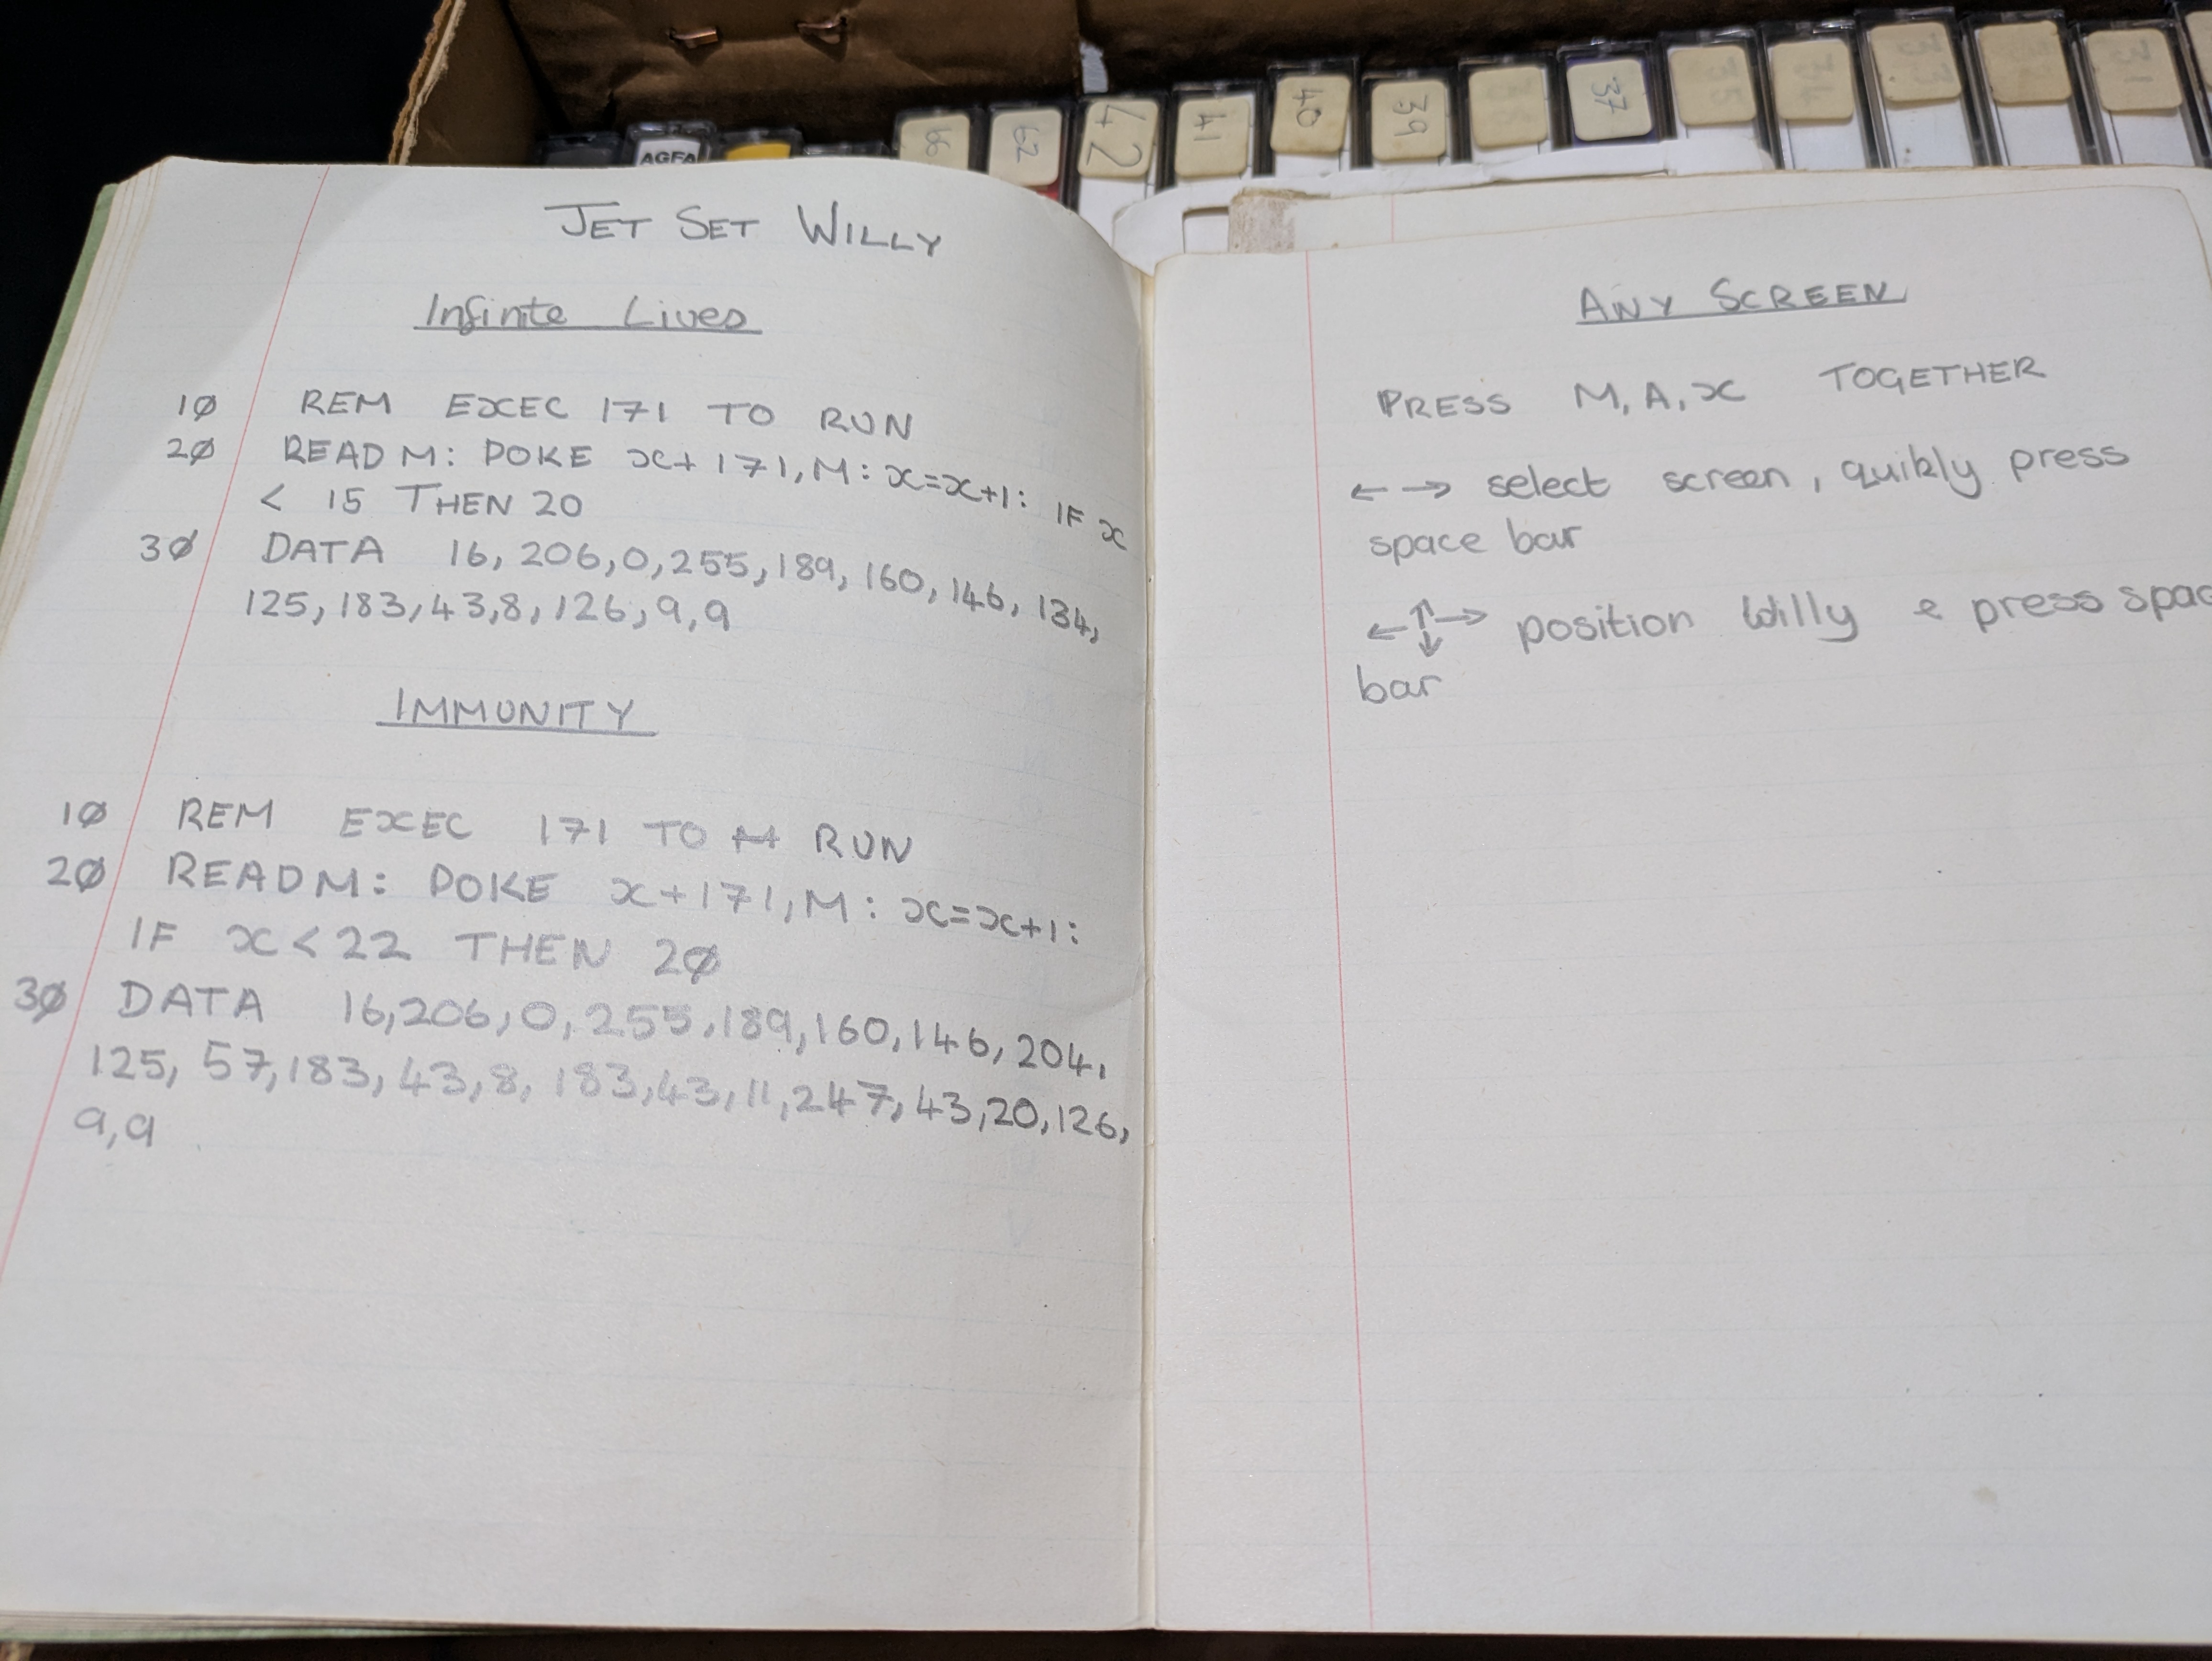 AGFA
66
62
42
41
40
39
37
35
34
33
31
JET SET WILLY
Infinite Lives
1Ø REM EXEC 171 TO RUN
2Ø READ M: POKE x+171,M: x=x+1: IF x
< 15 THEN 20
3Ø DATA 16, 206,0,255,189,160,146,134,
125,183,43,8,126,9,9
IMMUNITY
1Ø REM EXEC 171 TO M RUN
2Ø READM: POKE x+171,M: x=x+1:
IF x<22 THEN 2Ø
3Ø DATA 16,206,0,255,189,160,146,204,
125, 57,183,43,8,183,43,11,247,43,20,126,
9,9
ANY SCREEN
PRESS M,A,X TOGETHER
←→ select screen, quikly press
space bar
←↑↓→ position Willy & press spac
bar